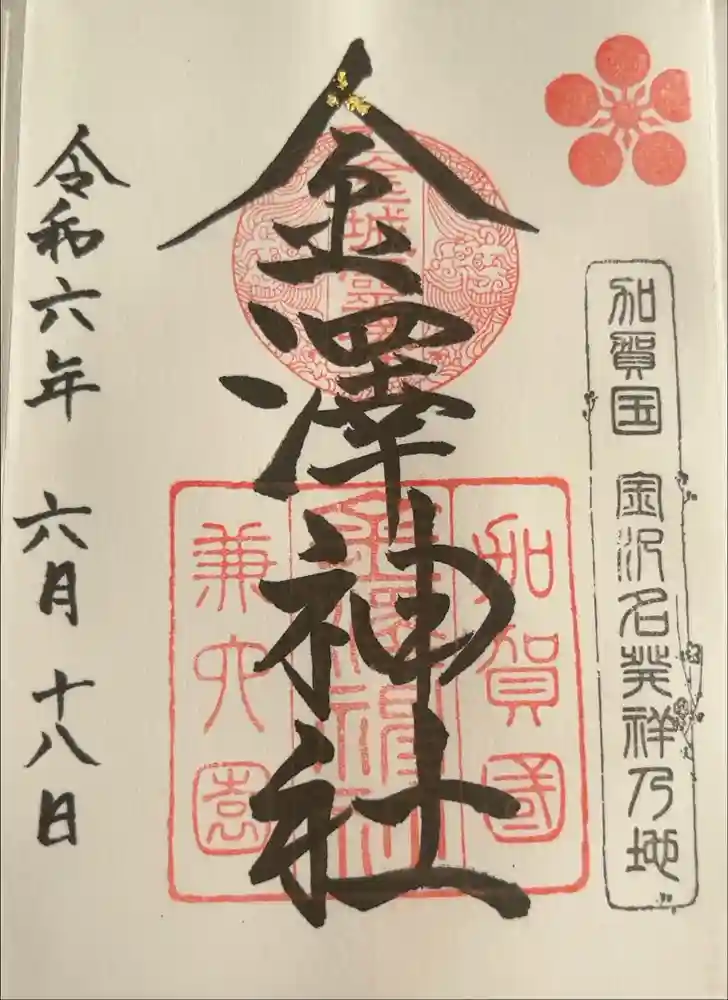 加賀国 金沢名発祥乃地
金澤神社
加賀國
金澤神社
兼六園
令和六年 六月 十八日